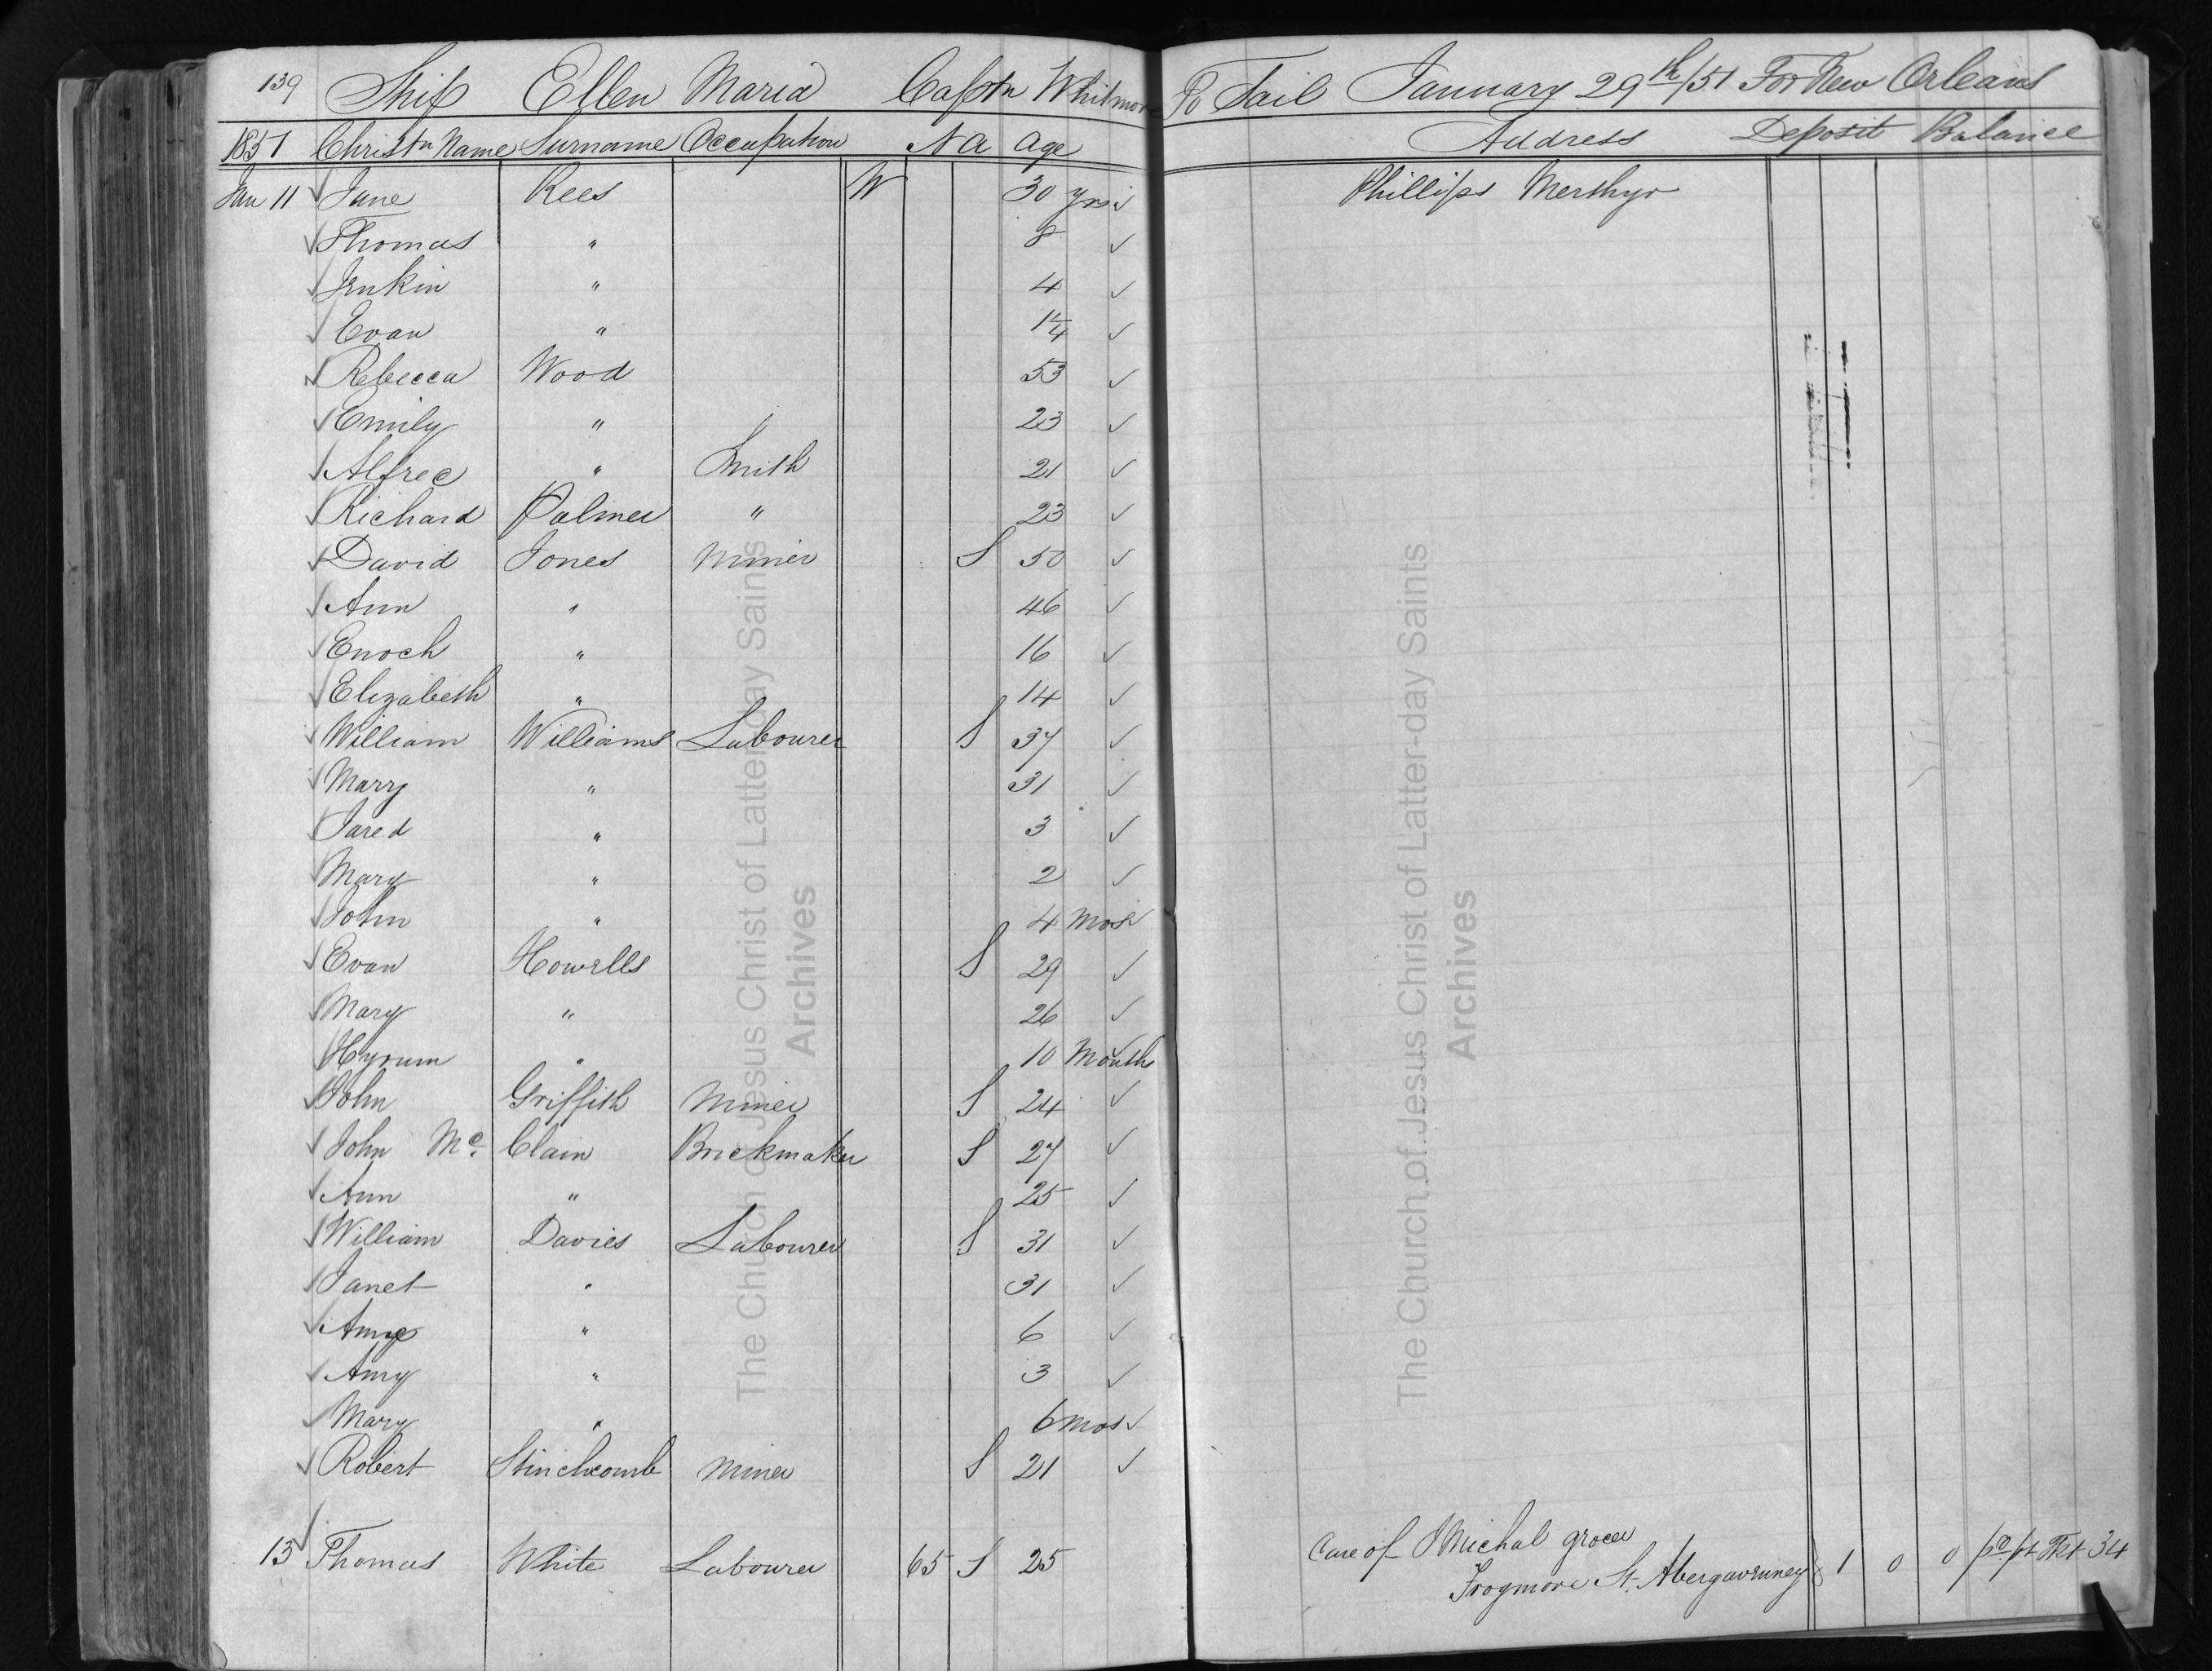 139 Ship Ellen Maria Captn Whitmore To Sail January 29th/51 For New Orleans
1851 Christn Name Surname Occupation N A Age Address Deposit Balance
Jan 11 Jane Rees W 30 yrs Phillips Merthyr
Thomas " 8
Jenkin " 4
Evan " 1 1/4
Rebecca Wood 53
Emily " 23
Alfred " Smith 21
Richard Palmer " 23
David Jones Miner S 50
Ann " 46
Enoch " 16
Elizabeth " 14
William Williams Labourer S 37
Mary " 31
Jared " 3
Mary " 2
John " 4 Mos
Evan Howells S 29
Mary " 26
Hyrum " 10 Months
John Griffith Miner S 24
John Mc Clain Brickmaker S 27
Ann " 25
William Davies Labourer S 31
Janet " 31
Anne " 6
Amy " 3
Mary " 6 mos
Robert Stinchcomb Miner S 21
13 Thomas White Labourer 65 S 25 Care of Michal grocer
Frogmore St. Abergavenney 1 0 0 34
The Church of Jesus Christ of Latter-day Saints
Archives
The Church of Jesus Christ of Latter-day Saints
Archives